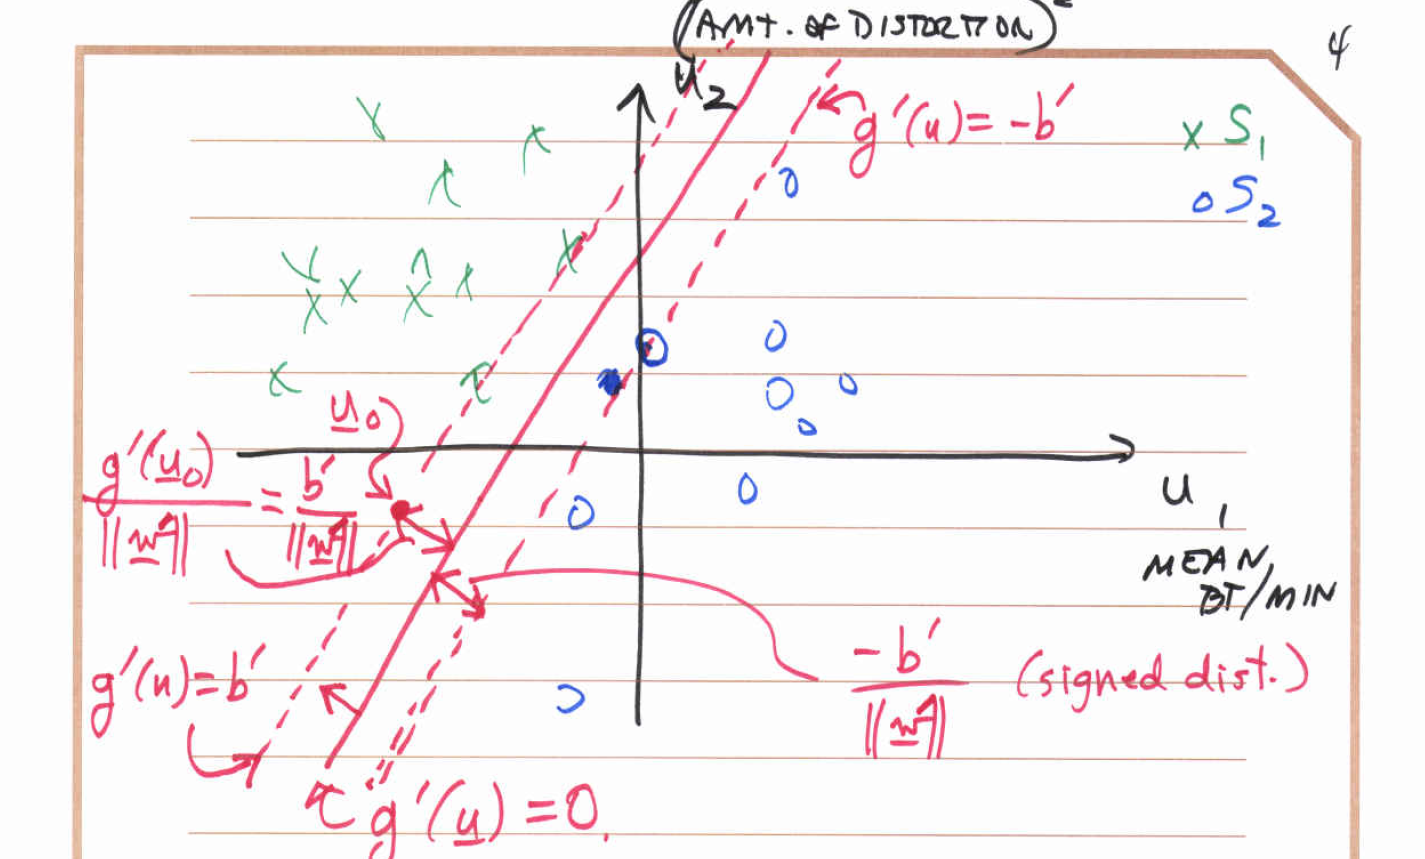 (AMT. OF DISTORTION)²
4
u₂
g'(u) = -b'
x S₁
o S₂
u₀
g'(u₀) / ||w'|| = b' / ||w'||
u₁
MEAN,
BT/MIN
g'(u) = b'
-b' / ||w'|| (signed dist.)
g'(u) = 0.